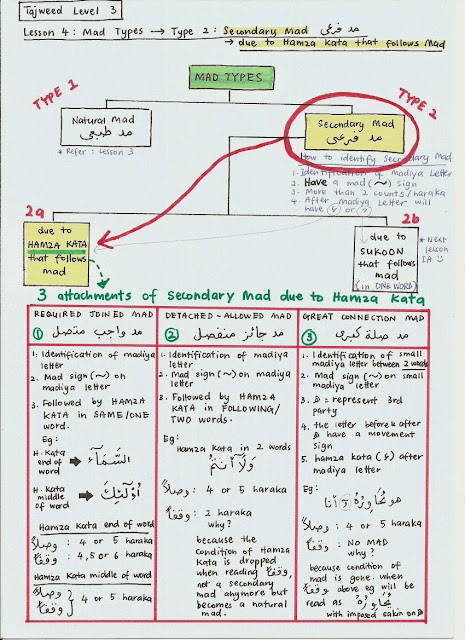 Tajweed Level 3
Lesson 4 : Mad Types → Type 2 : Secondary Mad مد فرعي
→ due to Hamza Kata that follows Mad
MAD TYPES
TYPE 1
TYPE 2
Natural mad
مد طبيعي
* Refer : Lesson 3
Secondary mad
مد فرعي
How to identify Secondary Mad
1. Identification of madiya letter
2. Have a mad (~) sign
3. More than 2 counts/haraka
4. After Madiya Letter will
have (ء) or (
2a
due to
HAMZA KATA
that follows
mad
2b
due to
SUKOON
that follows
mad
(in ONE WORD)
* Next
lesson
IA ☺
3 attachments of Secondary Mad due to Hamza Kata
REQUIRED JOINED MAD
① مد واجب متصل
1. Identification of madiya
letter
2. Mad sign (~) on madiya
letter
3. Followed by HAMZA
KATA in SAME/ONE
word.
Eg :
H. Kata
end of
word
السَّمَآء
H. Kata
middle of
word
أُوْلَٰٓئِكَ
Hamza Kata end of word
وصلاً : 4 or 5 haraka
وقفاً : 4, 5 or 6 haraka
Hamza Kata middle of word
وصلاً
وقفاً } 4 or 5 haraka
DETACHED-ALLOWED MAD
② مد جائز منفصل
1. Identification of madiya
letter
2. Mad sign (~) on madiya
letter
3. Followed by HAMZA
KATA in FOLLOWING/
TWO words.
Eg :
Hamza kata in 2 words
وَلَآ أَنتُمْ
وصلاً : 4 or 5 haraka
وقفاً : 2 haraka
why?
because the
condition of Hamza
Kata is dropped
when reading وقفاً,
not a secondary
mad anymore but
becomes a natural
mad.
GREAT CONNECTION MAD
③ مد صلة كبرى
1. Identification of small
madiya letter between 2 words
2. Mad sign (~) on small
madiya letter
3. ه = represent 3rd
party
4. the letter before & after
ه have a movement
sign
5. hamza kata (ء) after
madiya letter
Eg :
هو يُحَاوِرُهُ أنا
وصلاً : 4 or 5 haraka
وقفاً : NO MAD
why?
because condition
of mad is gone. when
وقفاً above eg will be
read as يُحَاوِرُهْ
with imposed sakin on ه